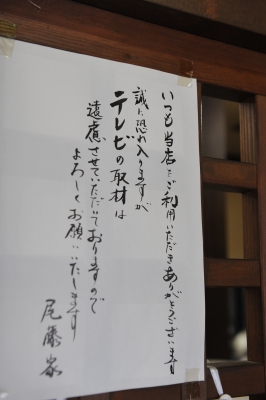 いつも当店をご利用いただきありがとうございます
誠に恐れ入りますが
テレビの取材は
遠慮させていただいておりますので
よろしくお願いいたします
尾藤家